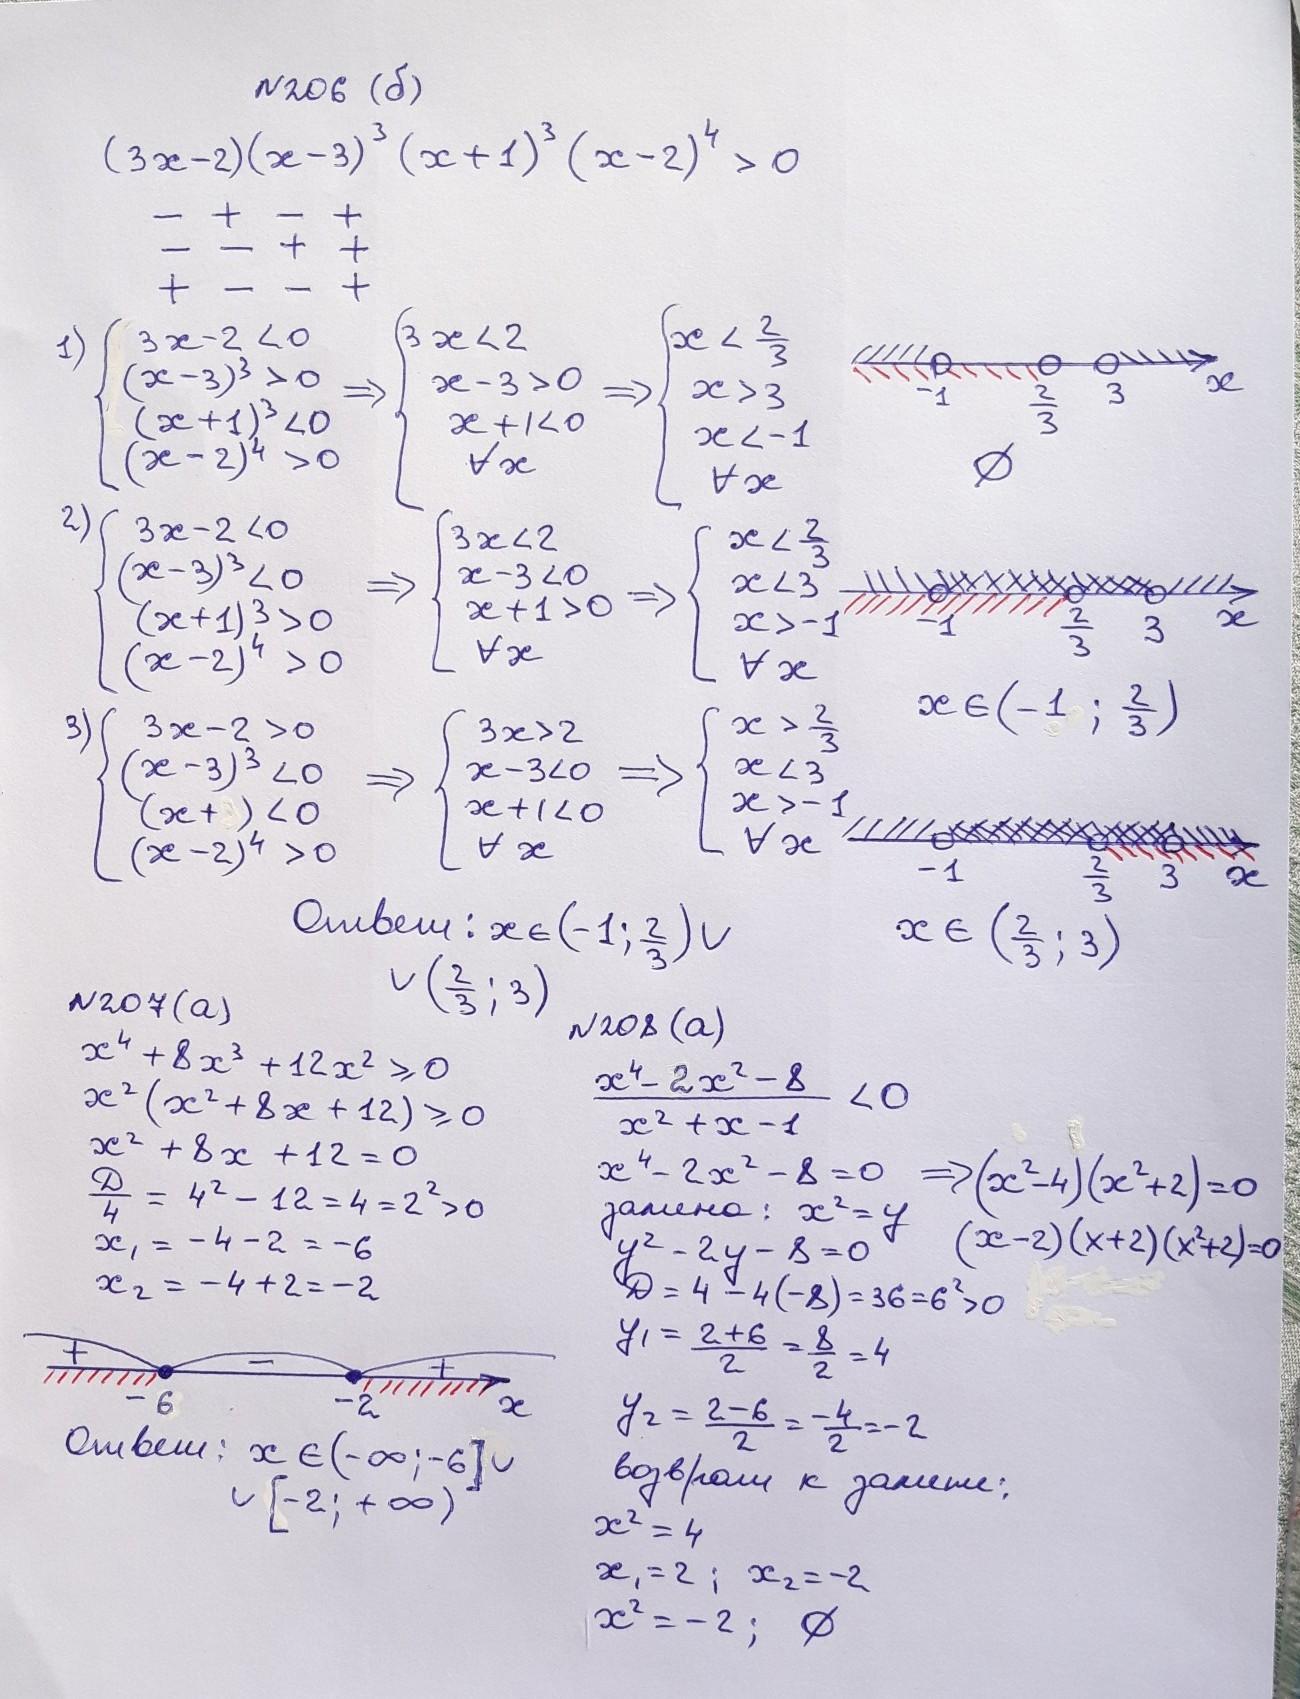 N206 (б)
(3x-2)(x-3)³(x+1)³(x-2)⁴ > 0
- + - +
- - + +
+ - - +
1) { 3x-2<0 ; (x-3)³>0 ; (x+1)³<0 ; (x-2)⁴>0 ⇒ { 3x<2 ; x-3>0 ; x+1<0 ; ∀x ⇒ { x<2/3 ; x>3 ; x<-1 ; ∀x
-1 2/3 3 x
∅
2) { 3x-2<0 ; (x-3)³<0 ; (x+1)³>0 ; (x-2)⁴>0 ⇒ { 3x<2 ; x-3<0 ; x+1>0 ; ∀x ⇒ { x<2/3 ; x<3 ; x>-1 ; ∀x
-1 2/3 3 x
x∈(-1; 2/3)
3) { 3x-2>0 ; (x-3)³<0 ; (x+ )<0 ; (x-2)⁴>0 ⇒ { 3x>2 ; x-3<0 ; x+1<0 ; ∀x ⇒ { x>2/3 ; x<3 ; x>-1 ; ∀x
-1 2/3 3 x
x∈(2/3; 3)
Ответ: x∈(-1; 2/3)∪
∪(2/3; 3)
N207(а)
x⁴+8x³+12x²⩾0
x²(x²+8x+12)⩾0
x²+8x+12=0
D/4 = 4²-12=4=2²>0
x₁=-4-2=-6
x₂=-4+2=-2
+ - +
-6 -2 x
Ответ: x∈(-∞;-6]∪
∪[-2;+∞)
N208(а)
(x⁴-2x²-8)/(x²+x-1) <0
x⁴-2x²-8=0 ⇒(x²-4)(x²+2)=0
замена: x²=y
(x-2)(x+2)(x²+2)=0
y²-2y-8=0
D=4-4(-8)=36=6²>0
y₁=(2+6)/2=8/2=4
y₂=(2-6)/2=-4/2=-2
возврат к замене:
x²=4
x₁=2; x₂=-2
x²=-2; ∅